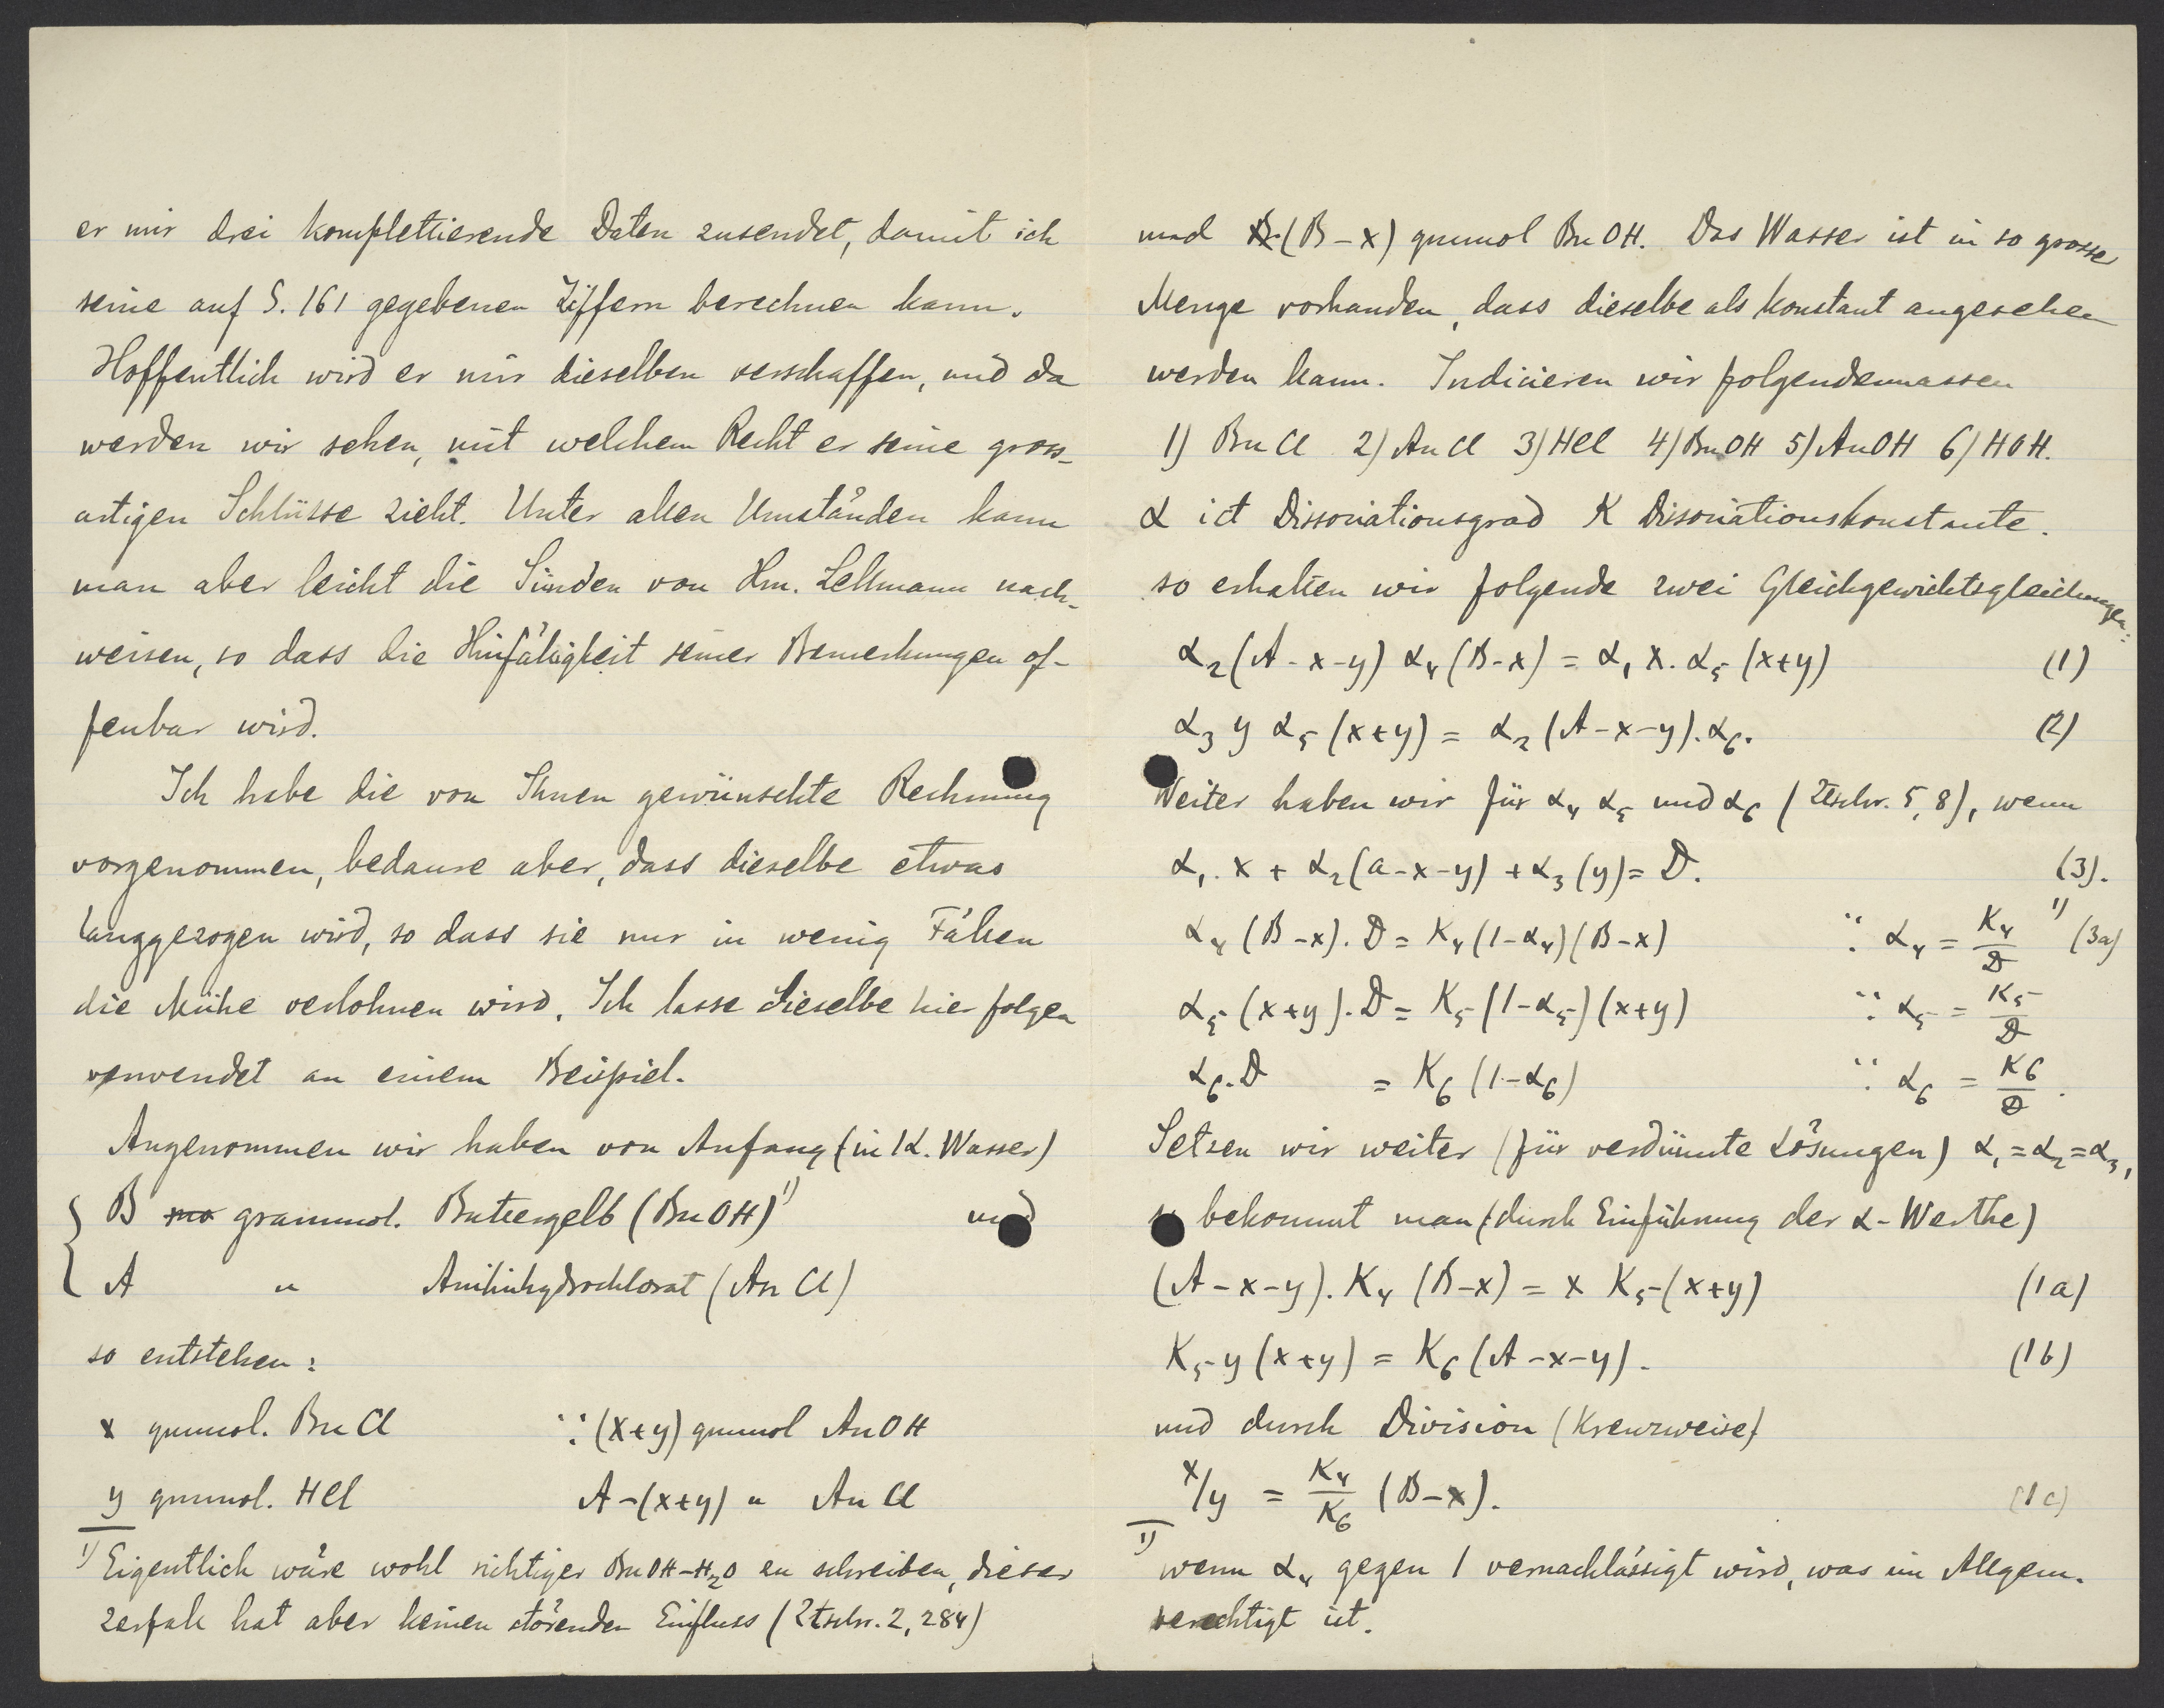 er mir drei komplettierende Daten zusendet, damit ich
seine auf S. 161 gegebenen Ziffern berechnen kann.
Hoffentlich wird er mir dieselben verschaffen, und da
werden wir sehen, mit welchem Recht er seine gross-
artigen Schlüsse zieht. Unter allen Umständen kann
man aber leicht die Sünden von Hrn. Lellmann nach-
weisen, so dass die Hinfälligkeit seiner Bemerkungen of-
fenbar wird.
Ich habe die von Ihnen gewünschte Rechnung
vorgenommen, bedaure aber, dass dieselbe etwas
langgezogen wird, so dass sie nur in wenig Fällen
die Mühe verlohnen wird. Ich lasse dieselbe hier folgen
verwendet an einem Beispiel.
Angenommen wir haben von Anfang (in 1 L. Wasser)
B grammol. Buttergelb (BuOH)¹⁾ und
A " Anilinhydrochlorat (An Cl)
so entstehen:
x grmmol. Bu Cl ∵ (x+y) grmmol AnOH
y grmmol. HCl A-(x+y) " An Cl
¹⁾ Eigentlich wäre wohl richtiger BuOH-H₂O zu schreiben, dieser
Zerfall hat aber keinen störenden Einfluss (Ztschr. 2, 284)
und (B-x) grmmol BuOH. Das Wasser ist in so grosser
Menge vorhanden, dass dieselbe als konstant angesehen
werden kann. Indicieren wir folgendermassen
1) Bu Cl 2) An Cl 3) HCl 4) BuOH 5) AnOH 6) HOH.
α ist Dissociationsgrad K Dissociationskonstante.
so erhalten wir folgende zwei Gleichgewichtsgleichungen:
α₂(A-x-y) α₄(B-x) = α₁ x. α₅ (x+y) (1)
α₃ y α₅ (x+y) = α₂ (A-x-y). α₆. (2)
Weiter haben wir für α₄ α₅ und α₆ (Ztschr. 5, 8), wenn
α₁. x + α₂(a-x-y) + α₃ (y) = D. (3).
α₄ (B-x). D = K₄ (1-α₄)(B-x) ∵ α₄ = K₄/D ¹⁾ (3a)
α₅ (x+y). D = K₅ (1-α₅)(x+y) ∵ α₅ = K₅/D
α₆. D = K₆ (1-α₆) ∵ α₆ = K₆/D.
Setzen wir weiter (für verdünnte Lösungen) α₁=α₂=α₃,
so bekommt man (durch Einführung der α-Werthe)
(A-x-y). K₄ (B-x) = x K₅ (x+y) (1a)
K₅ y (x+y) = K₆ (A-x-y). (1b)
und durch Division (Kreuzweise)
x/y = K₄/K₆ (B-x). (1c)
¹⁾ wenn α₄ gegen 1 vernachlässigt wird, was im Allgem.
berechtigt ist.